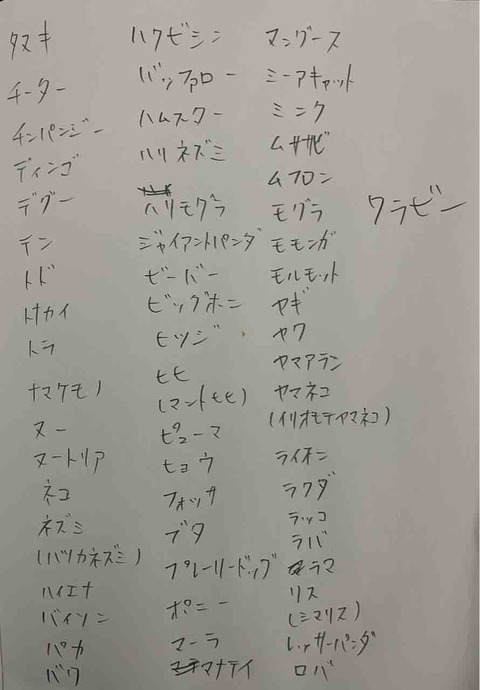 タヌキ
チーター
チンパンジー
ディンゴ
デグー
テン
トド
トナカイ
トラ
ナマケモノ
ヌー
ヌートリア
ネコ
ネズミ
(ハツカネズミ)
ハイエナ
バイソン
パカ
バク
ハクビシン
バッファロー
ハムスター
ハリネズミ
ハリモグラ
ジャイアントパンダ
ビーバー
ビッグホーン
ヒツジ
ヒヒ
(マントヒヒ)
ピューマ
ヒョウ
フォッサ
ブタ
プレーリードッグ
ポニー
マーラ
マナティ
マングース
ミーアキャット
ミンク
ムササビ
ムフロン
モグラ
モモンガ
モルモット
ヤギ
ヤク
ヤマアラシ
ヤマネコ
(イリオモテヤマネコ)
ライオン
ラクダ
ラッコ
ラバ
ラマ
リス
(シマリス)
レッサーパンダ
ロバ
ワラビー